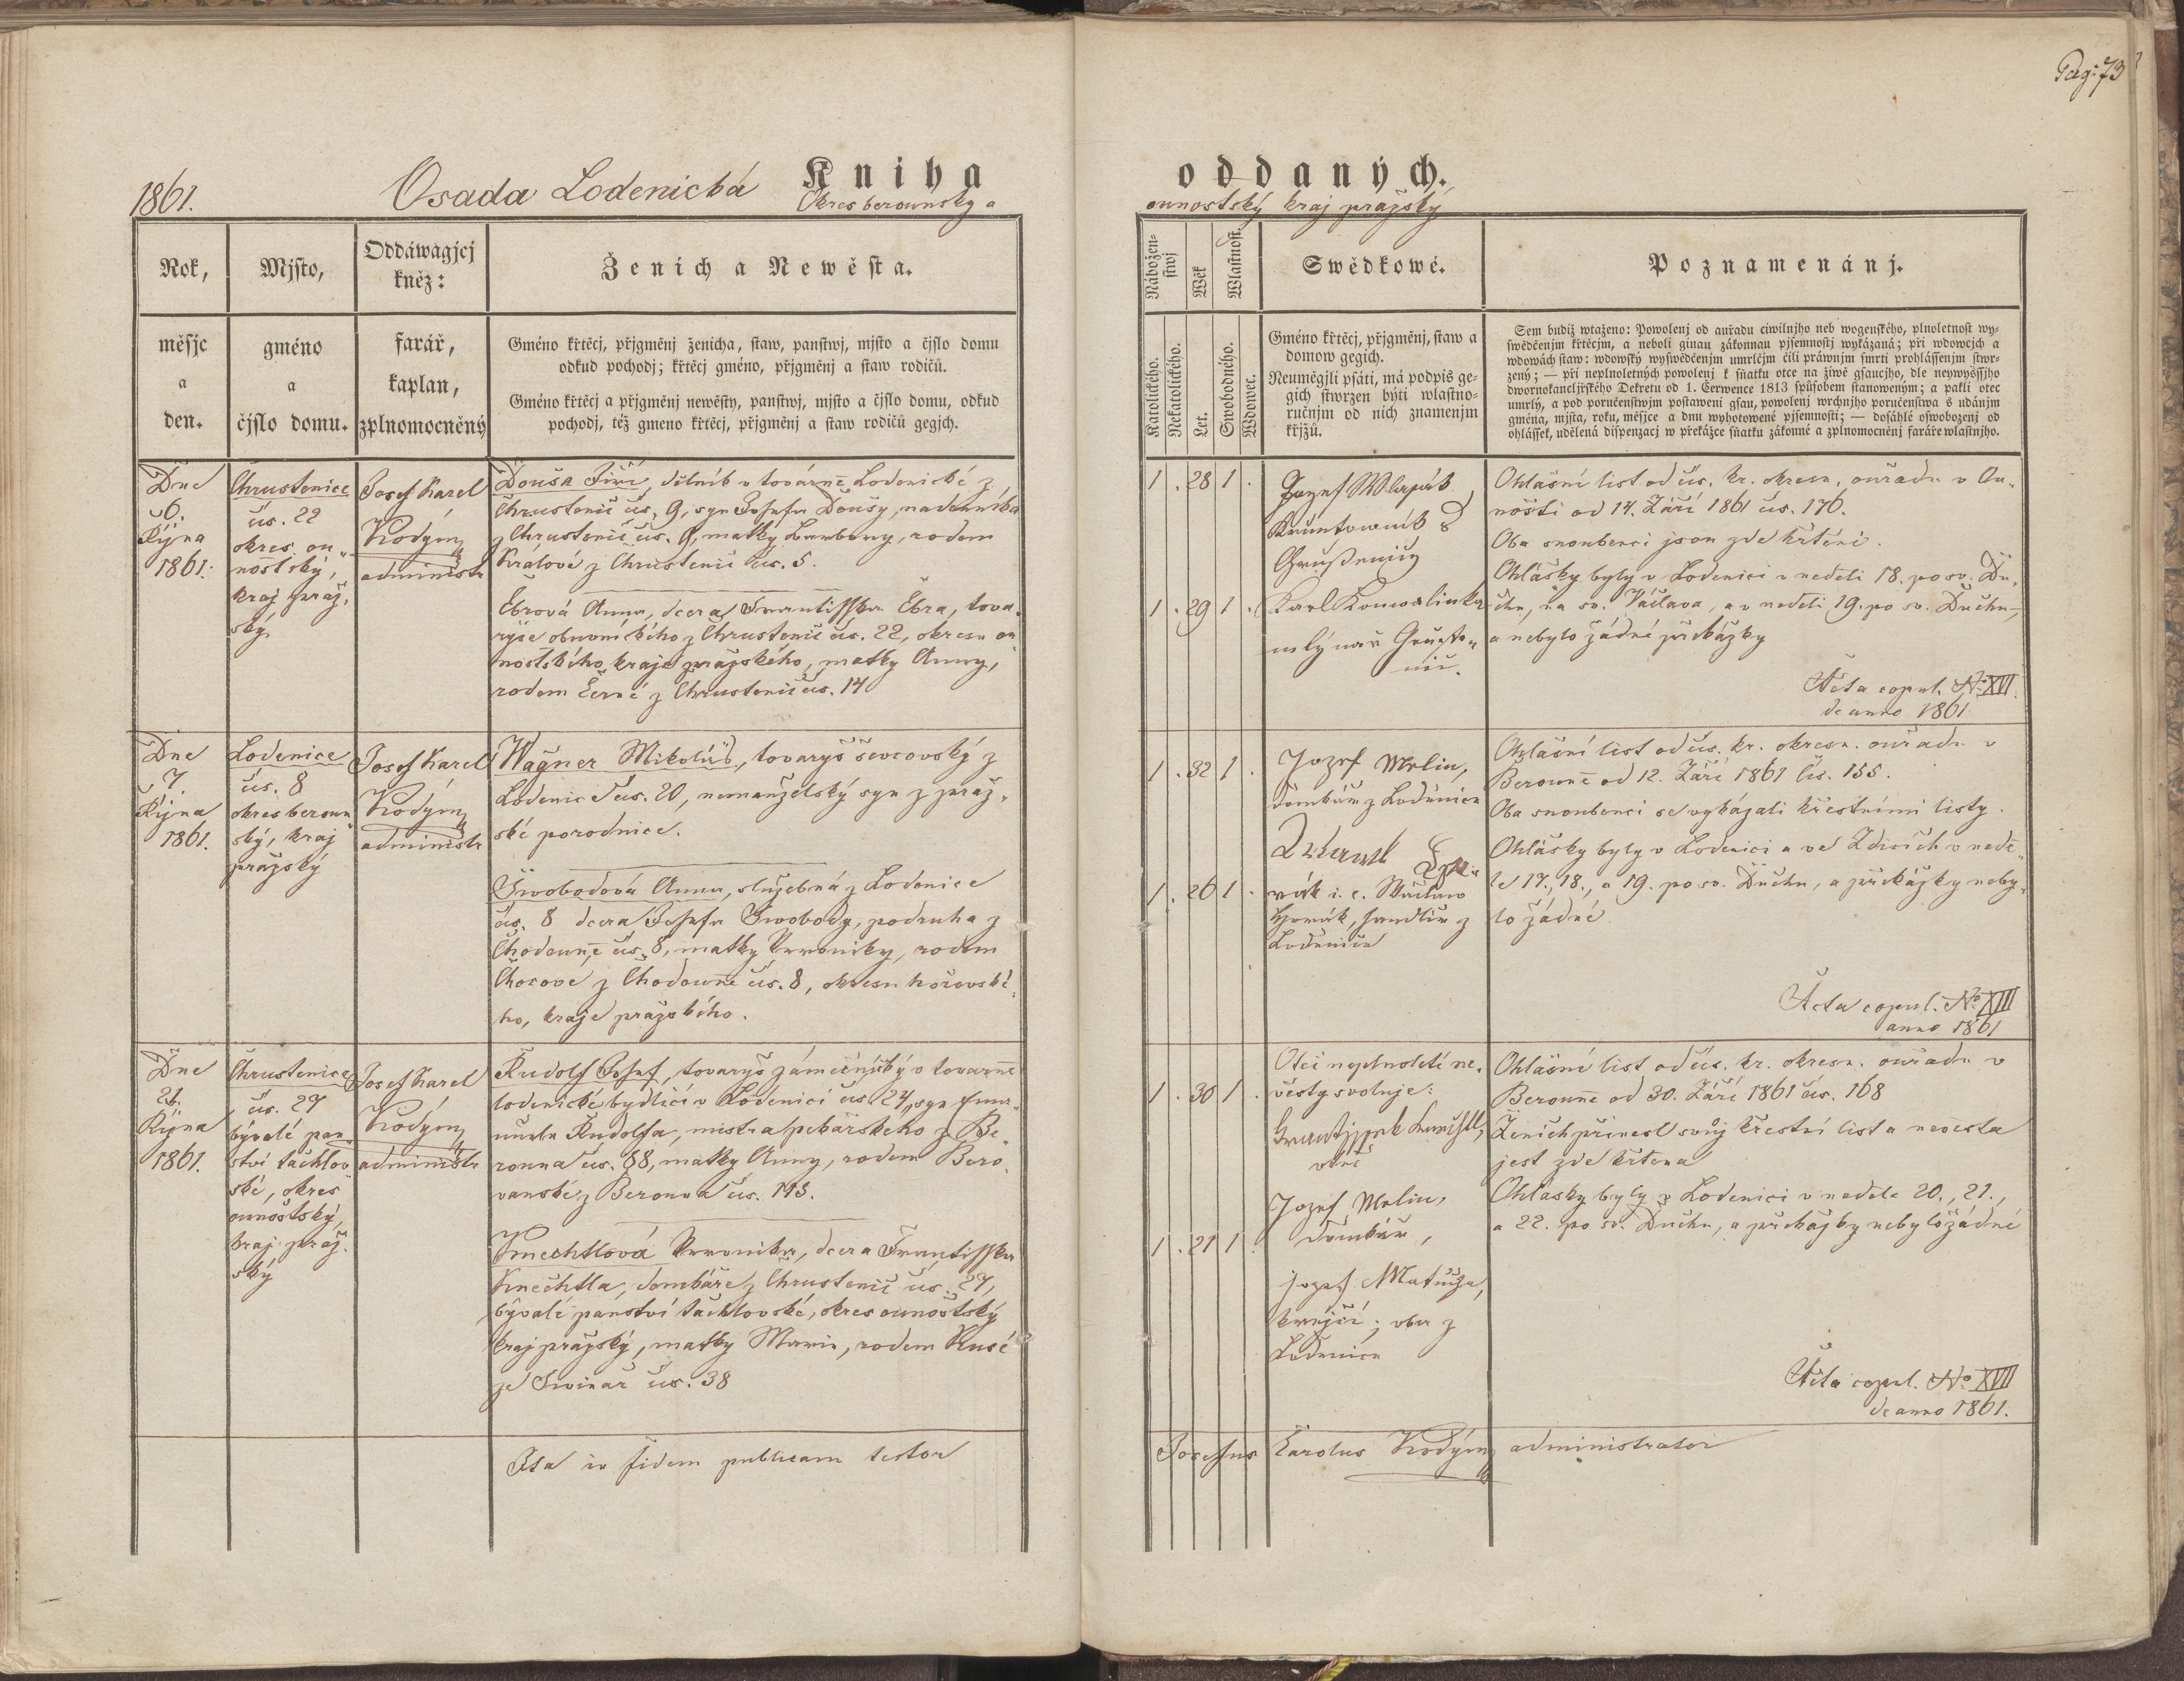 Pag: 73
1861.
Osada Lodenická
Kniha
oddaných.
Okres berounský a
ounoštský kraj pražský
Rok,
měsjc
a
den.
Mjsto,
gméno
a
čjslo domu.
Oddáwagjcj
kněz:
farář,
kaplan,
zplnomocněný
Ženich a Newěsta.
Gméno křtěcj, přjgměnj ženicha, staw, panstwj, mjsto a čjslo domu
odkud pochodj; křtěcj gméno, přjgměnj a staw rodičů.
Gméno křtěcj a přjgměnj newěsty, panstwj, mjsto a čjslo domu, odkud
pochodj, též gmeno křtěcj, přjgměnj a staw rodičů gegjch.
Nábožen-
stwj
Wěk
Wlastnost.
Katolického.
Nekatolického.
Let.
Swobodného.
Wdowec.
Swědkowé.
Gméno křtěcj, přjgměnj, staw a
domow gegich.
Neumějgli psáti, má podpis ge-
gich stwrzen býti wlastno-
ručnjm od nich znamenjm
křjžů.
Poznamenánj.
Sem budiž wtaženo: Powolenj od auřadu ciwilnjho neb wogenského, plnoletnost wy-
swědčenjm křtěcjm, a neboli ginau zákonnau pjsemnostj wykázaná; při wdowcjch a
wdowách staw: wdowský wyswědčenjm umrlčjm čili práwnjm smrti prohlássenjm stwr-
zený; — při neplnoletných powolenj k sňatku otce na žiwě gsaucjho, dle neywyššjho
dwornokancljřského Dekretu od 1. Čerwence 1813 spůsobem stanoweným; a pakli otec
umrlý, a pod poručenstwjm postaweni gsau, powolenj wrchnjho poručenstwa s udánjm
gména, mjsta, roku, měsjce a dnu wyhotowené pjsemnosti; — dosáhlé oswobozenj od
ohlássek, udělená dispenzacj w překážce sňatku zákonné a zplnomocněnj faráře wlastnjho.
Dne
6.
Října
1861.
Chrustenice
čís. 22
okres. ou-
nošťský,
kraj praž-
ský.
Josef Karel
Kodym
administr
Douša Jiří, dělník v továrně Lodenické z
Chrustenic čís. 9, syn Josefa Doušy, nádenníka
z Chrustenic čís. 9, matky Barbory, rodem
Králové z Chrustenic čís. 5.
Ebrová Anna, dcera Františka Ebra, tova-
ryše obuvnického z Chrustenic čís. 22, okresu ou-
nošťského, kraje pražského, matky Anny,
rodem Černé z Chrustenic čís. 14
1 . 28 1 .
1 . 29 1 .
Jozef
Karl
mlýnař
Ohlašní list od čís. kr. okresn. ouřadu v Ou-
nošti od 14. Září 1861 čís. 176.
Oba snoubenci jsou zde křtěni.
Ohlášky byly v Lodenici v neděli 18. po sv. Du-
chu, na sv. Václava, a v neděli 19. po sv. Duchu,
a nebylo žádné překážky
Acta copul. No XVI.
de anno 1861
Dne
7.
Října
1861.
Lodenice
čís. 8
okres beroun
ský, kraj
pražský
Josef Karel
Kodym
administr
Wagner Mikoláš, tovaryš ševcovský z
Lodenic čís. 20, nemanželský syn z praž-
ské porodnice.
Swobodová Anna, služebná z Lodenice
čís. 8 dcera Josefa Swobody, podruha z
Chodouně čís. 8, matky Veroniky, rodem
z Chodouně čís. 8, okresu hořovské-
ho, kraje pražského.
1 . 32 1 .
1 . 26 1 .
Jozef Melin,
domkář z Loděnice
rák i. e. Wáclaw
Horák, z
Loděnice
Ohlašní list od čís. kr. okresn. ouřadu v
Berouně od 12. Září 1861 čís. 155.
Oba snoubenci se vykázali křestními listy.
Ohlášky byly v Lodenici a ve Zdicích v nedě-
le 17., 18., a 19. po sv. Duchu, a překážky neby-
lo žádné
Acta copul. No XIII
anno 1861
Dne
21.
Října
1861.
Chrustenice
čís. 27
bývalé pan-
ství tachlov
ské, okres
ounoštský,
kraj praž-
ský
Josef Karel
Kodym
administr
Rudolf Josef, tovaryš zámečnický v továrně
lodenické bydlící v Lodenici čís. 24, syn Ema-
nuele Rudolfa, mistra pekařského z Be-
rouna čís. 88, matky Anny, rodem Bero-
vanské z Berouna čís. 113.
Knechtlová Veronika, dcera Františka
Knechtla, domkáře z Chrustenic čís. 27,
bývalé panství tachlovské, okres ounoštský
kraj pražský, matky Marie, rodem Kusé
ze Swinař čís. 38
1 . 30 1 .
1 . 21 1 .
Otec neplnoleté ne-
věsty svoluje:
otec
Jozef Melin,
Domkář,
jozef Matuža,
krejčí; oba z
Loděnice
Ohlašní list od čís. kr. okresn. ouřadu v
Berouně od 30. Září 1861 čís. 168
Ženich přinesl svůj křestní list a nevěsta
jest zde křtěna
Ohlasky byly v Lodenici v neděle 20., 21.,
a 22. po sv. Duchu, a překážky nebylo žádné
Acta copul. No XVII
de anno 1861.
Ita in fidem publicam testor
Josephus Carolus Kodym administrator